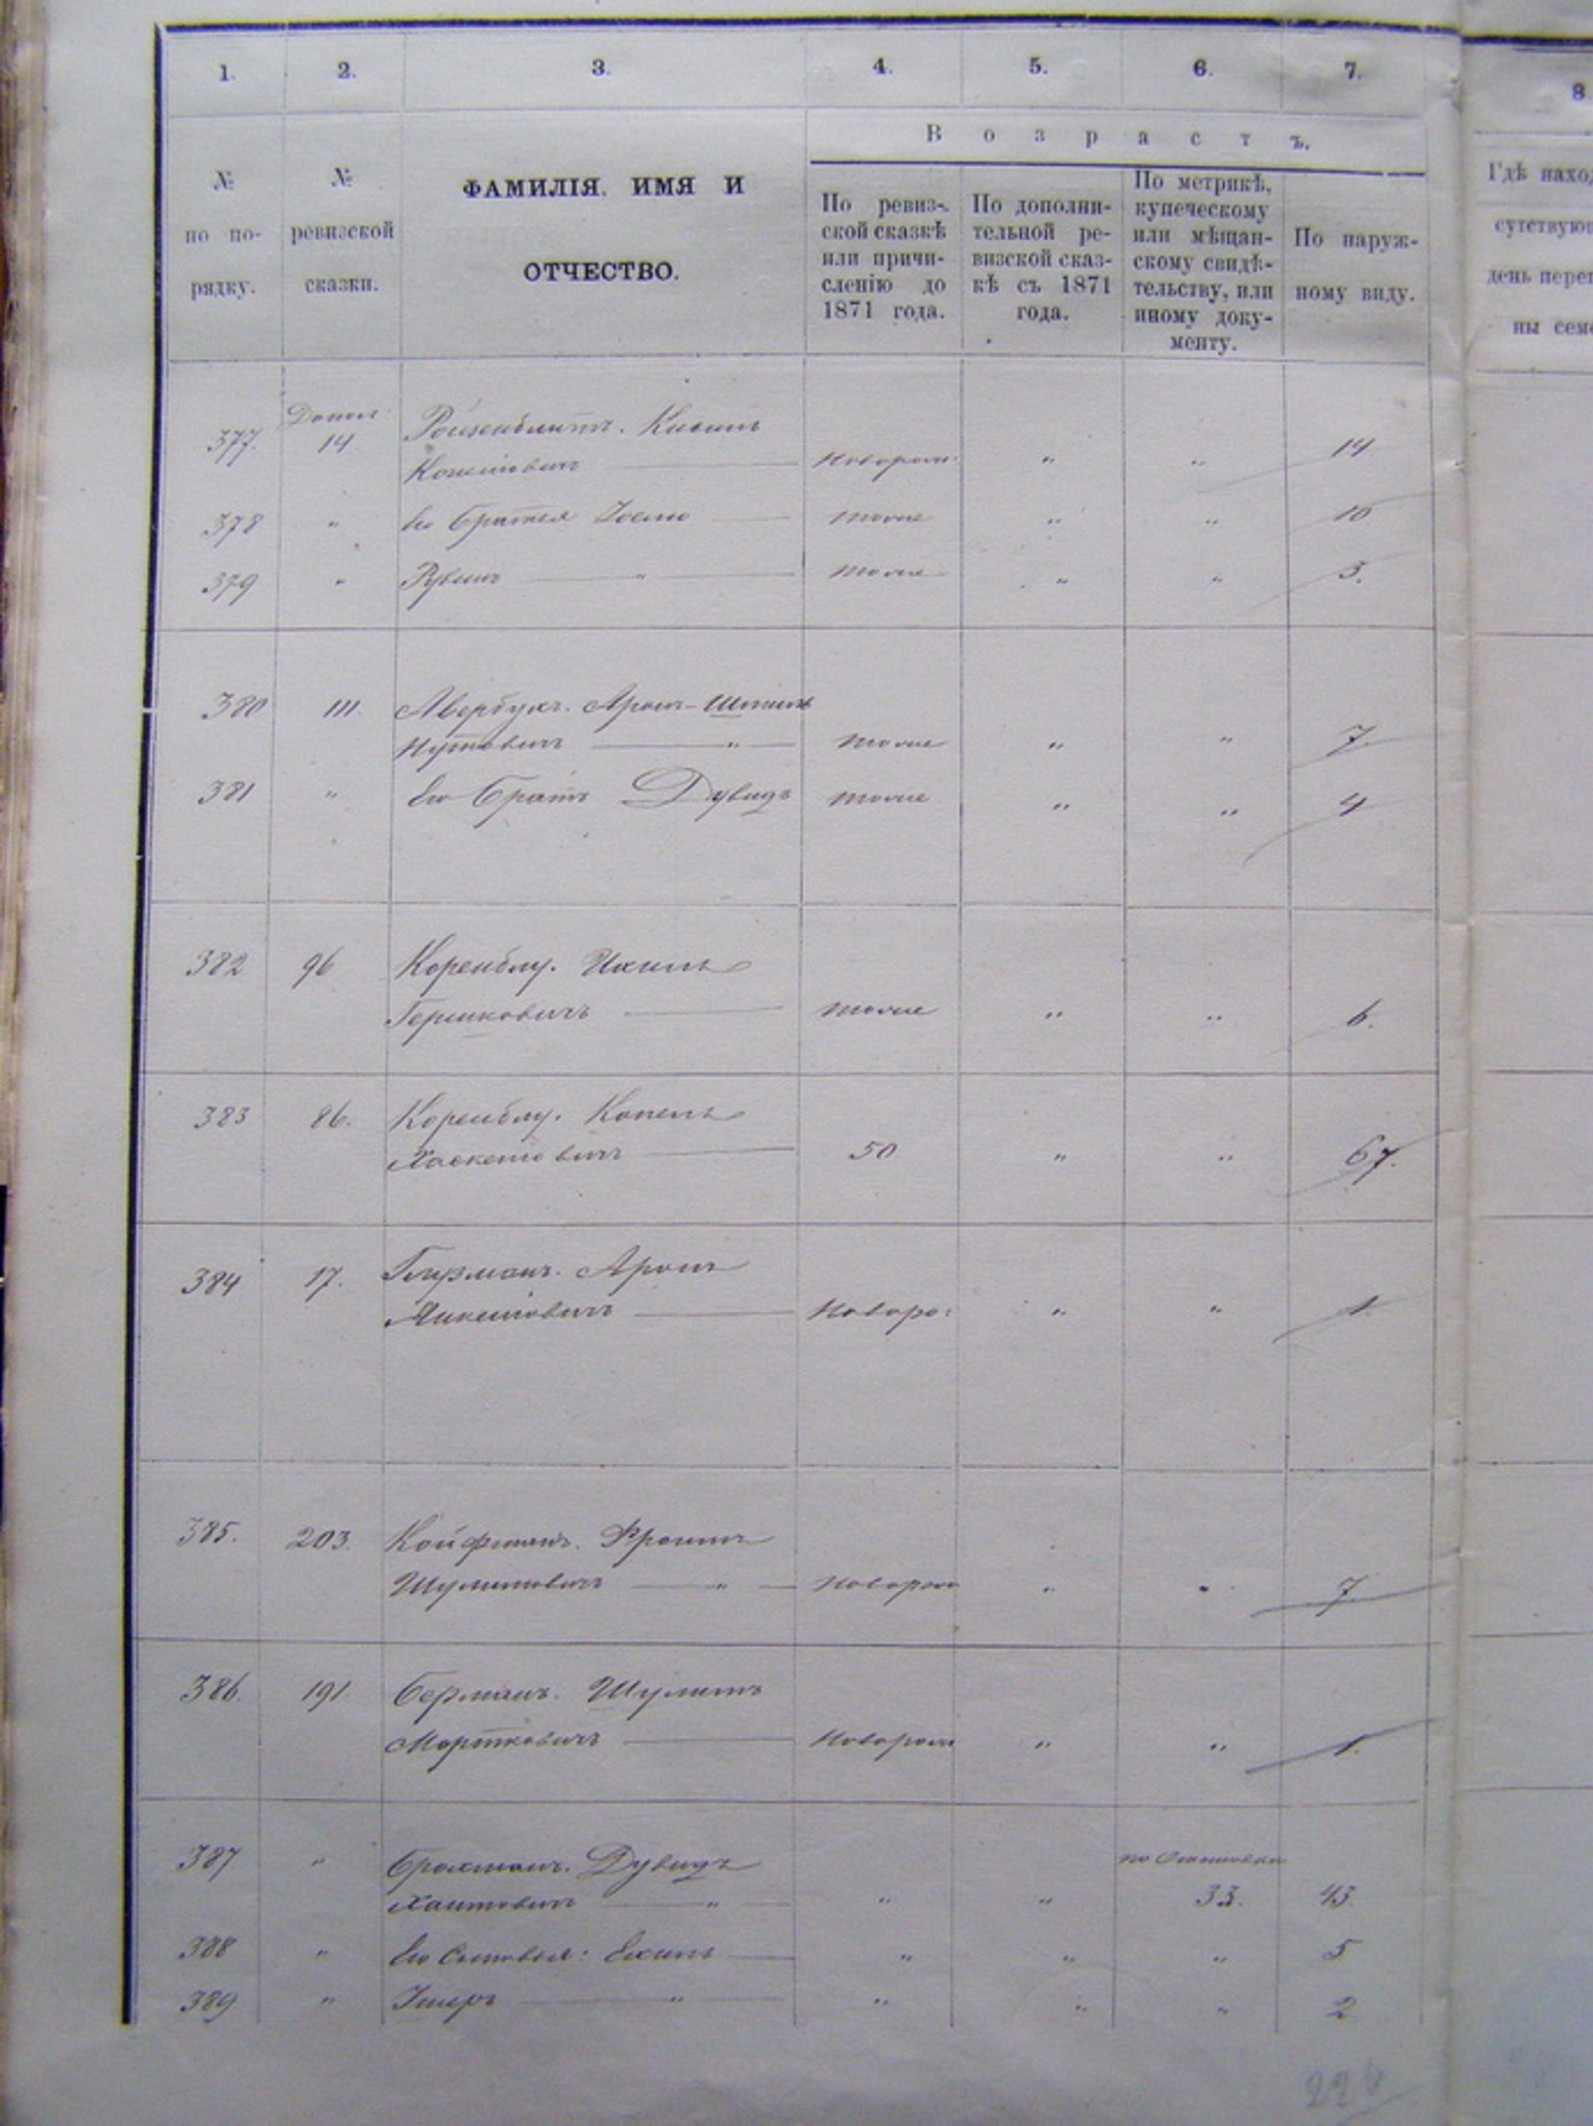 1. 2. 3. 4. 5. 6. 7. 8
Возрастъ.
№ по по-рядку.
№ ревизской сказки.
ФАМИЛІЯ, ИМЯ И
ОТЧЕСТВО.
По ревиз-
ской сказкѣ
или причи-
сленію до
1871 года.
По дополни-
тельной ре-
визской сказ-
кѣ съ 1871
года.
По метрикѣ,
купеческому
или мѣщан-
скому свидѣ-
тельству, или
иному доку-
менту.
По наруж-
ному виду.
Гдѣ наход
сутствую
день пере
ны сем
377. 14 Ройзенблитъ.
Новорож: " " 14.
378 " Его братья " " 10
379 " Рувинъ " " " 3.
380 111. Авербухъ. Аронъ-
" тоже " " 7.
381 " Его братъ Дувидъ тоже " " 4
382 96 Коренблу. Ихиль
Гершковичъ тоже " " 6.
383 86. Коренблу. Копель
50 " " 67.
384 17. Аронъ
Янкелевичъ Новоро: " " 1.
385. 203. Койфманъ. Фроимъ
Шулимовичъ " Новорож " " 7
386. 191 Берманъ. Шулимъ
Мортковичъ Новорож " " 1.
387 " Брахманъ. Дувидъ
Хаимовичъ " " " 33. 43.
388 " Его сыновья: Ехиль " " " 5
389 " " " " " 2
226